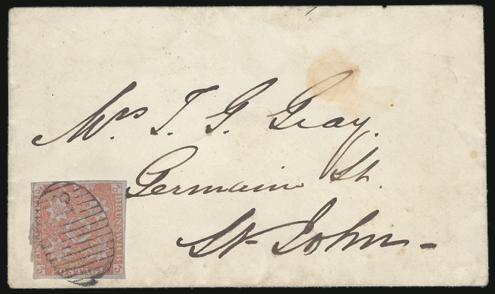 Mrs T. G. Gray.
Germain St.
St. John -